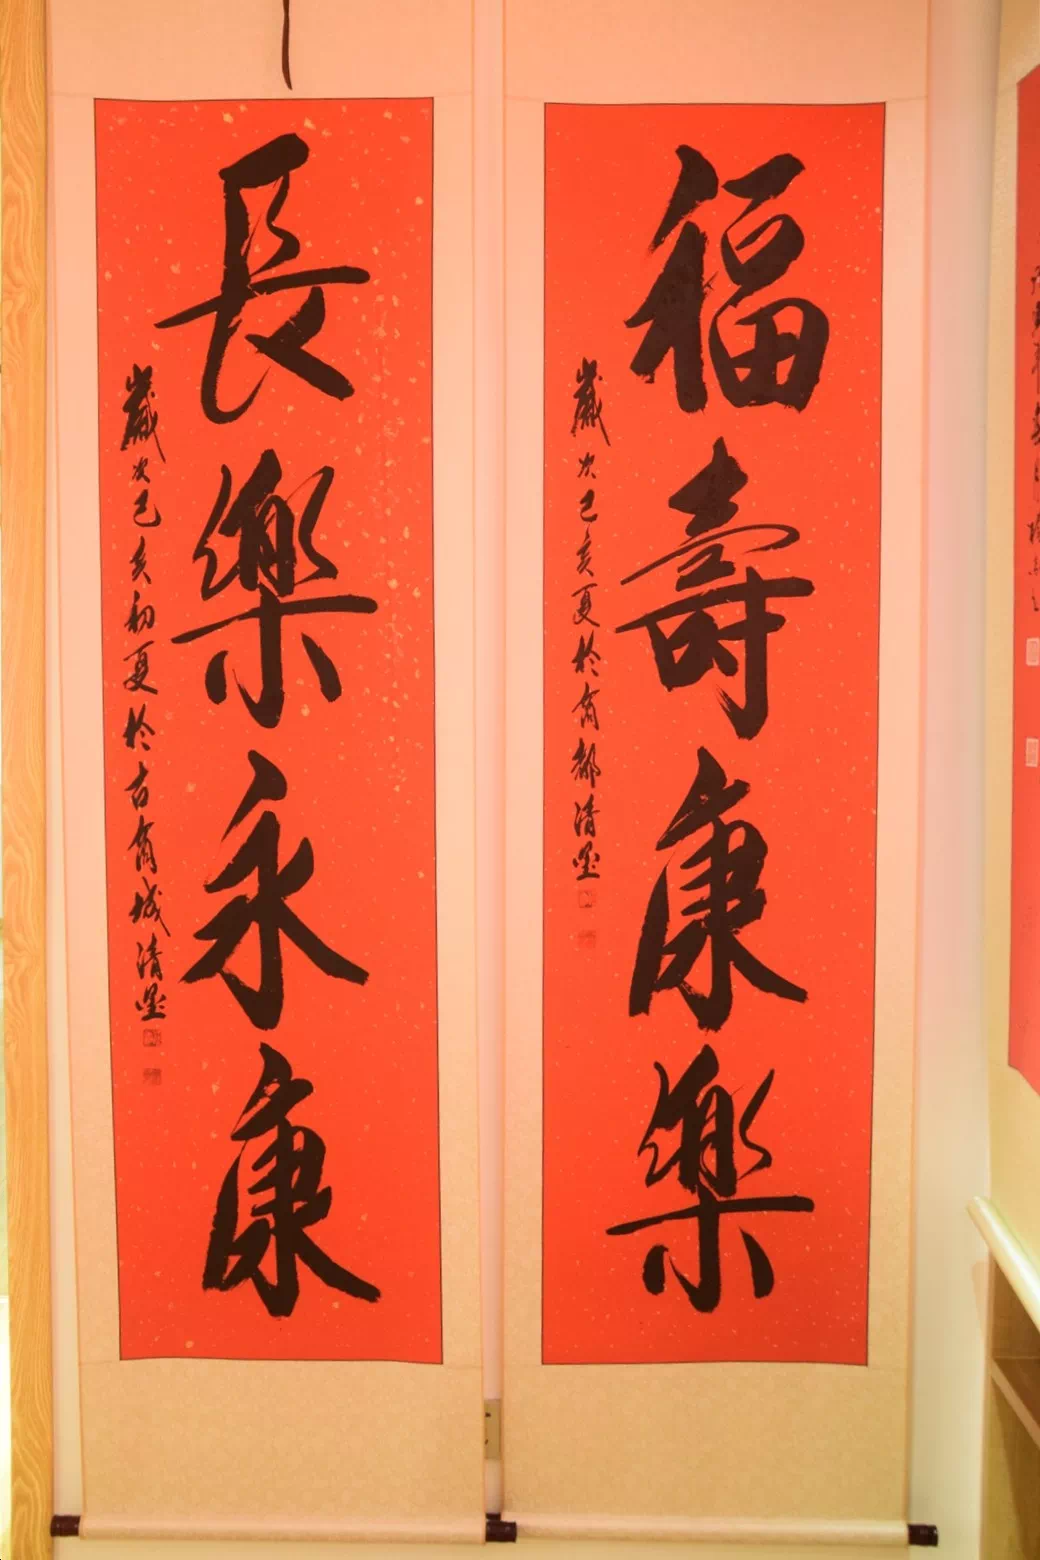 福壽康樂
歲次己亥夏於甯都清墨
長樂永康
歲次己亥初夏於古甯城清墨